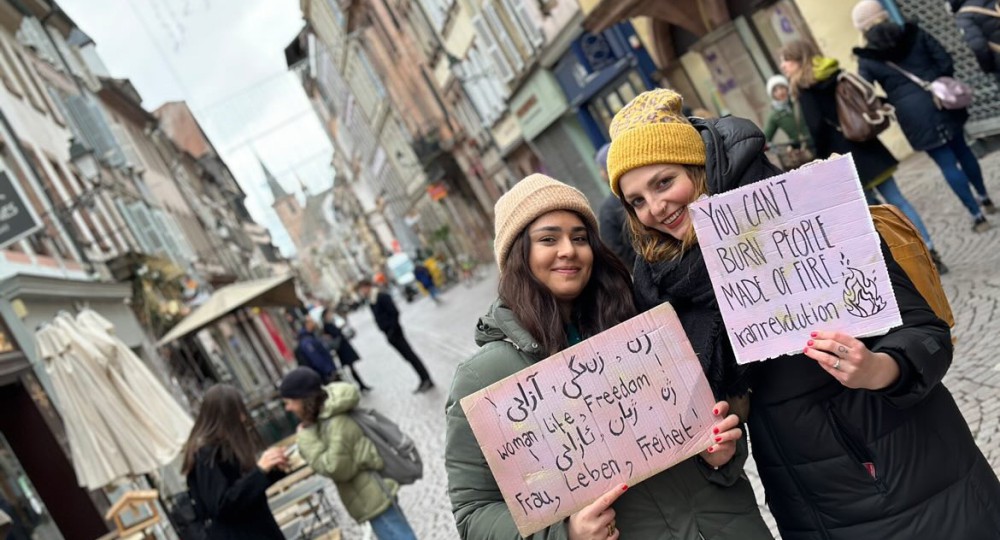 زن، زندگی، آزادی
Woman, Life, Freedom!
ژن، ژیان، ئازادی
Frau, Leben, Freiheit!
YOU CAN'T
BURN PEOPLE
MADE OF FIRE
iranrevolution